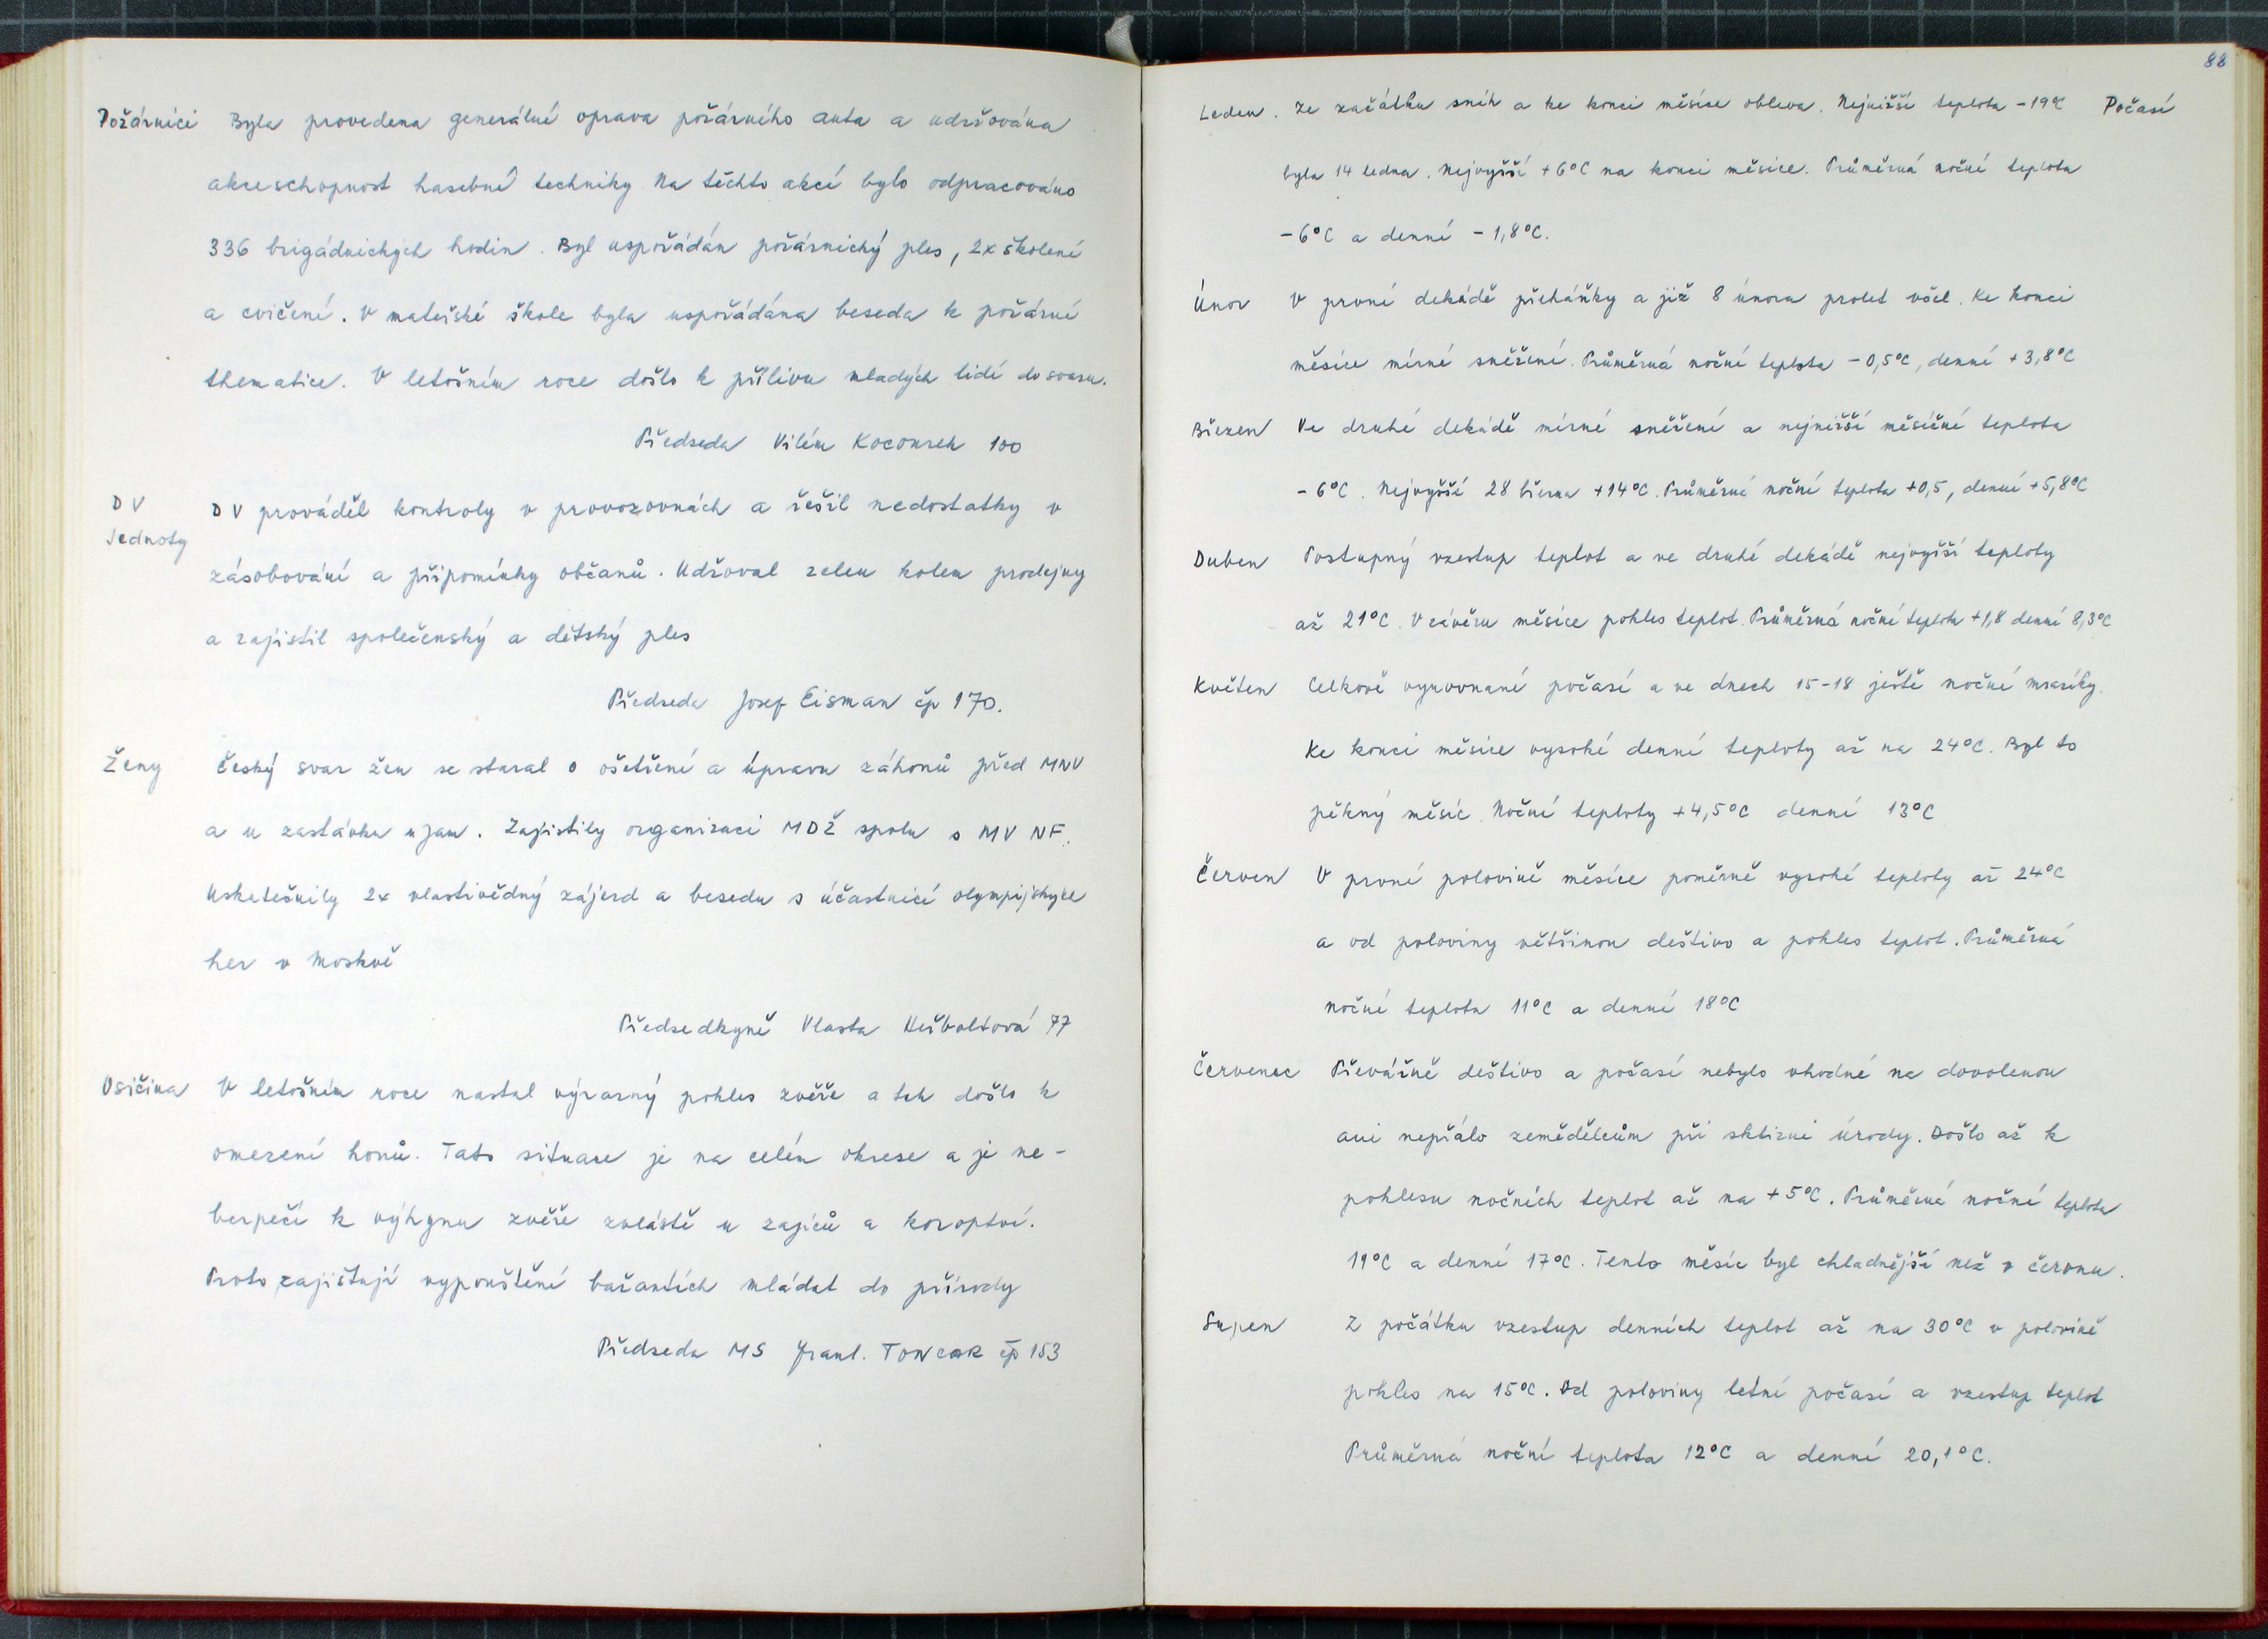 Požárníci Byla provedena generální oprava požárního auta a udržována
akceschopnost hasebné techniky Na těchto akcí bylo odpracováno
336 brigádnických hodin. Byl uspořádán požárnický ples, 2x školení
a cvičení. V mateřské škole byla uspořádána beseda k požární
thematice. V letošním roce došlo k přílivu mladých lidí do svazu.
Předseda Vilém Kocourek 100
DV
Jednoty
DV prováděl kontroly v provozovnách a řešil nedostatky v
zásobování a připomínky občanů. Udržoval zeleň kolem prodejny
a zajistil společenský a dětský ples
Předseda Josef Eisman čp 170.
Ženy Český svaz žen se staral o ošetření a úpravu záhonů před MNV
a u zastávka ujam. Zajistily organizaci MDŽ spolu s MV NF.
Uskutečnily 2x vlastivědný zájezd a besedu s účastnicí olympijských
her v Moskvě
Předsedkyně Vlasta 77
V letošním roce nastal výrazný pokles zvěře a tak došlo k
omezení honů. Tato situace je na celém okrese a je ne-
bezpečí k výhynu zvěře zvláště u zajíců a koroptví.
Proto zajišťují vypouštění bažantích mláďat do přírody
Předseda MS Frant. TONCAR čp 153
88
Počasí
Leden. Ze začátku sníh a ke konci měsíce obleva. Nejnižší teplota -19°C
byla 14 ledna. Nejvyšší +6°C na konci měsíce. Průměrná noční teplota
-6°C a denní -1,8°C.
Únor V první dekádě přeháňky a již 8 února prolet včel. Ke konci
měsíce mírné sněžení. Průměrná noční teplota -0,5°C, denní +3,8°C
Březen Ve druhé dekádě mírné sněžení a nejnižší měsíční teplota
-6°C. Nejvyšší 28 března +14°C. Průměrná noční teplota +0,5, denní +5,8°C
Duben Postupný vzestup teplot a ve druhé dekádě nejvyšší teploty
až 21°C. V závěru měsíce pokles teplot. Průměrná noční teplota +1,8 denní 8,3°C
Květen Celkově vyrovnané počasí a ve dnech 15-18 ještě noční mrazíky.
Ke konci měsíce vysoké denní teploty až na 24°C. Byl to
pěkný měsíc. Noční teploty +4,5°C denní 13°C
Červen V první polovině měsíce poměrně vysoké teploty až 24°C
a od poloviny většinou deštivo a pokles teplot. Průměrná
noční teplota 11°C a denní 18°C
Červenec Převážně deštivo a počasí nebylo vhodné na dovolenou
ani nepřálo zemědělcům při sklizni úrody. Došlo až k
poklesu nočních teplot až na +5°C. Průměrná noční teplota
19°C a denní 17°C. Tento měsíc byl chladnější než v červnu.
Srpen Z počátku vzestup denních teplot až na 30°C v polovině
pokles na 15°C. Od poloviny letní počasí a vzestup teplot
Průměrná noční teplota 12°C a denní 20,1°C.